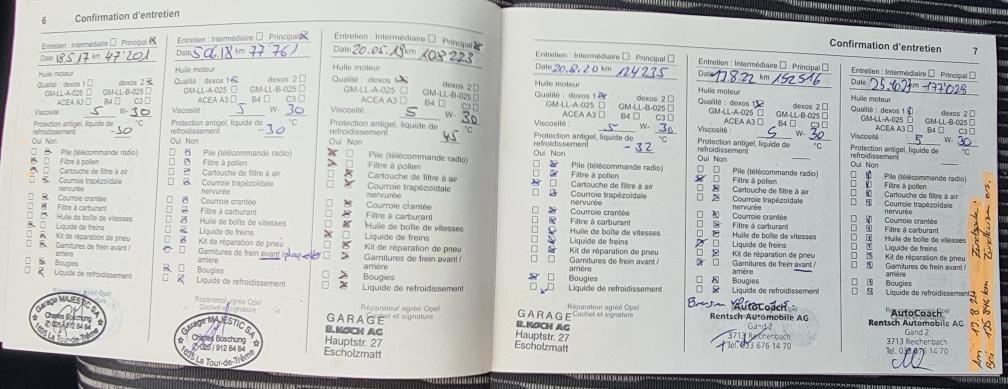 6 Confirmation d'entretien
Entretien : Intermédiaire Principal
Date 18.5.17 km 47'201
Huile moteur
Qualité : dexos 1 dexos 2
GM-LL-A-025 GM-LL-B-025
ACEA A3 B4 C3
Viscosité : 5 W- 30
Protection antigel, liquide de °C
refroidissement -30
Oui Non
Pile (télécommande radio)
Filtre à pollen
Cartouche de filtre à air
Courroie trapézoïdale
nervurée
Courroie crantée
Filtre à carburant
Huile de boîte de vitesses
Liquide de freins
Kit de réparation de pneu
Garnitures de frein avant /
arrière
Bougies
Liquide de refroidissement
Garage MAJESTIC SA
Charles Boschung
026 / 912 84 84
1635 La Tour-de-Trême
Entretien : Intermédiaire Principal
Date 5.6.18 km 77'761
Huile moteur
Qualité : dexos 1 dexos 2
GM-LL-A-025 GM-LL-B-025
ACEA A3 B4 C3
Viscosité : 5 W- 30
Protection antigel, liquide de °C
refroidissement -30
Oui Non
Pile (télécommande radio)
Filtre à pollen
Cartouche de filtre à air
Courroie trapézoïdale
nervurée
Courroie crantée
Filtre à carburant
Huile de boîte de vitesses
Liquide de freins
Kit de réparation de pneu
Garnitures de frein avant /
arrière
Bougies
Liquide de refroidissement
Réparateur agréé Opel
Cachet et signature
Garage MAJESTIC SA
Charles Boschung
026 / 912 84 84
1635 La Tour-de-Trême
Entretien : Intermédiaire Principal
Date 20.05.19 km 108223
Huile moteur
Qualité : dexos 1 dexos 2
GM-LL-A-025 GM-LL-B-025
ACEA A3 B4 C3
Viscosité : 5 W- 30
Protection antigel, liquide de °C
refroidissement 45
Oui Non
Pile (télécommande radio)
Filtre à pollen
Cartouche de filtre à air
Courroie trapézoïdale
nervurée
Courroie crantée
Filtre à carburant
Huile de boîte de vitesses
Liquide de freins
Kit de réparation de pneu
Garnitures de frein avant /
arrière
Bougies
Liquide de refroidissement
Réparateur agréé Opel
Cachet et signature
GARAGE
B.KOCH AG
Hauptstr. 27
Escholzmatt
Confirmation d'entretien 7
Entretien : Intermédiaire Principal
Date 20.8.20 km 124235
Huile moteur
Qualité : dexos 1 dexos 2
GM-LL-A-025 GM-LL-B-025
ACEA A3 B4 C3
Viscosité : 5 W- 30
Protection antigel, liquide de °C
refroidissement -32
Oui Non
Pile (télécommande radio)
Filtre à pollen
Cartouche de filtre à air
Courroie trapézoïdale
nervurée
Courroie crantée
Filtre à carburant
Huile de boîte de vitesses
Liquide de freins
Kit de réparation de pneu
Garnitures de frein avant /
arrière
Bougies
Liquide de refroidissement
Réparateur agréé Opel
Cachet et signature
GARAGE
B.KOCH AG
Hauptstr. 27
Escholzmatt
Entretien : Intermédiaire Principal
Date 17.8.22 km 152516
Huile moteur
Qualité : dexos 1 dexos 2
GM-LL-A-025 GM-LL-B-025
ACEA A3 B4 C3
Viscosité : 5 W- 30
Protection antigel, liquide de °C
refroidissement
Oui Non
Pile (télécommande radio)
Filtre à pollen
Cartouche de filtre à air
Courroie trapézoïdale
nervurée
Courroie crantée
Filtre à carburant
Huile de boîte de vitesses
Liquide de freins
Kit de réparation de pneu
Garnitures de frein avant /
arrière
Bougies
Liquide de refroidissement
AutoCoach
Rentsch Automobile AG
Gand 2
3713 Reichenbach
Tel. 033 676 14 70
Entretien : Intermédiaire Principal
Date km 177'029
Huile moteur
Qualité : dexos 1 dexos 2
GM-LL-A-025 GM-LL-B-025
ACEA A3 B4 C3
Viscosité : 5 W- 30
Protection antigel, liquide de °C
refroidissement
Oui Non
Pile (télécommande radio)
Filtre à pollen
Cartouche de filtre à air
Courroie trapézoïdale
nervurée
Courroie crantée
Filtre à carburant
Huile de boîte de vitesses
Liquide de freins
Kit de réparation de pneu
Garnitures de frein avant /
arrière
Bougies
Liquide de refroidissement
AutoCoach
Rentsch Automobile AG
Gand 2
3713 Reichenbach
Tel. 033 676 14 70